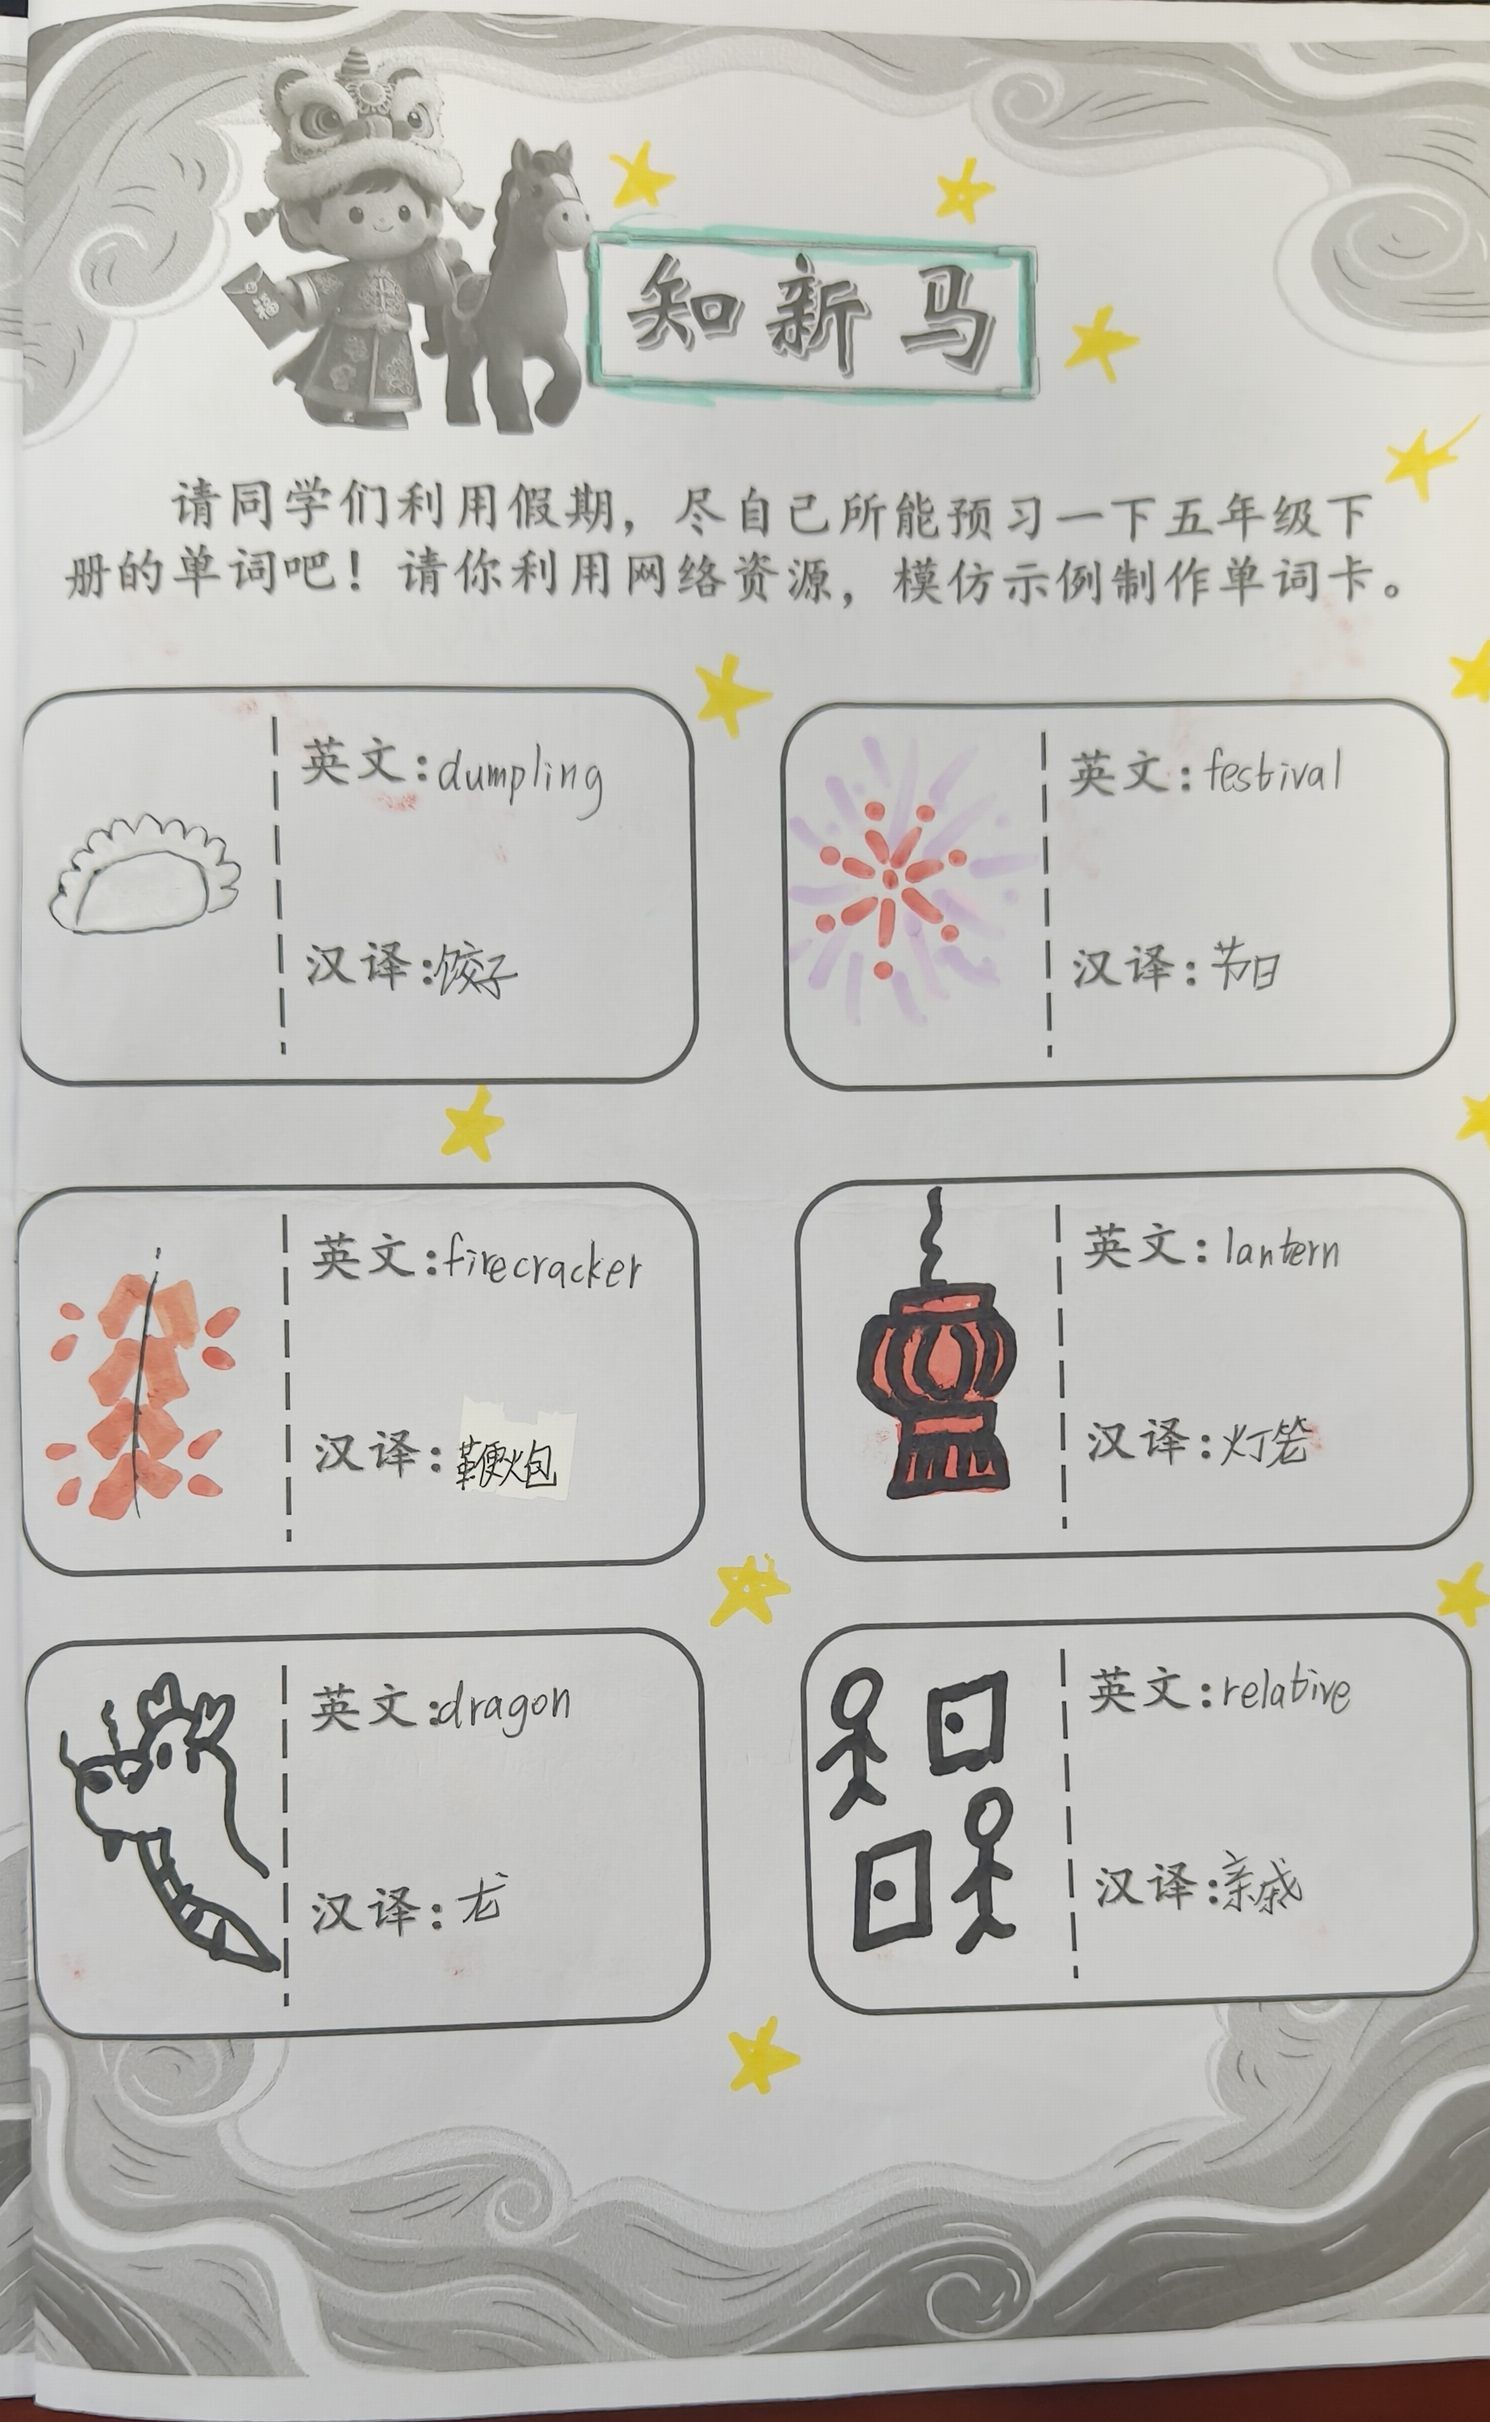 福
知新马
请同学们利用假期，尽自己所能预习一下五年级下
册的单词吧！请你利用网络资源，模仿示例制作单词卡。
英文：dumpling
汉译：饺子
英文：festival
汉译：节日
英文：firecracker
汉译：鞭炮
英文：lantern
汉译：灯笼
英文：dragon
汉译：龙
英文：relative
汉译：亲戚